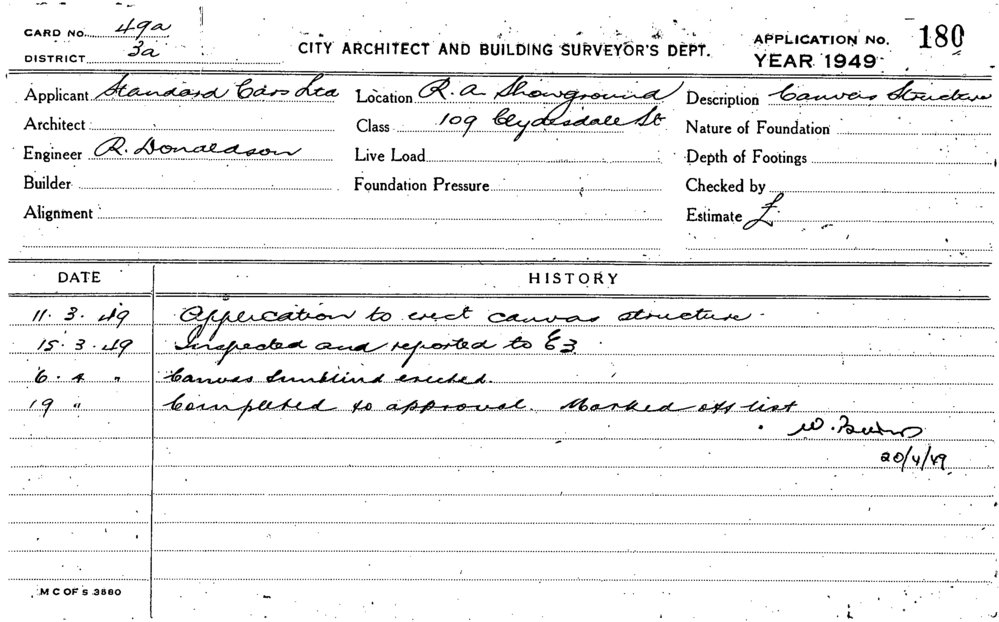 CARD NO. 49a
DISTRICT 3a
CITY ARCHITECT AND BUILDING SURVEYOR'S DEPT.
APPLICATION NO. 180
YEAR 1949
Applicant Standard Cars Ltd Location R.A. Showground Description Canvas Structure
Architect Class 109 Clydesdale St Nature of Foundation
Engineer R. Donaldson Live Load Depth of Footings
Builder Foundation Pressure Checked by
Alignment Estimate £
DATE HISTORY
11. 3. 49 Application to erect canvas structure.
15. 3. 49 Inspected and reported to E3
6. 4 " Canvas Sunblind erected.
19 " Completed to approval. Marked off list
W.
20/4/49
M C OF S 3580